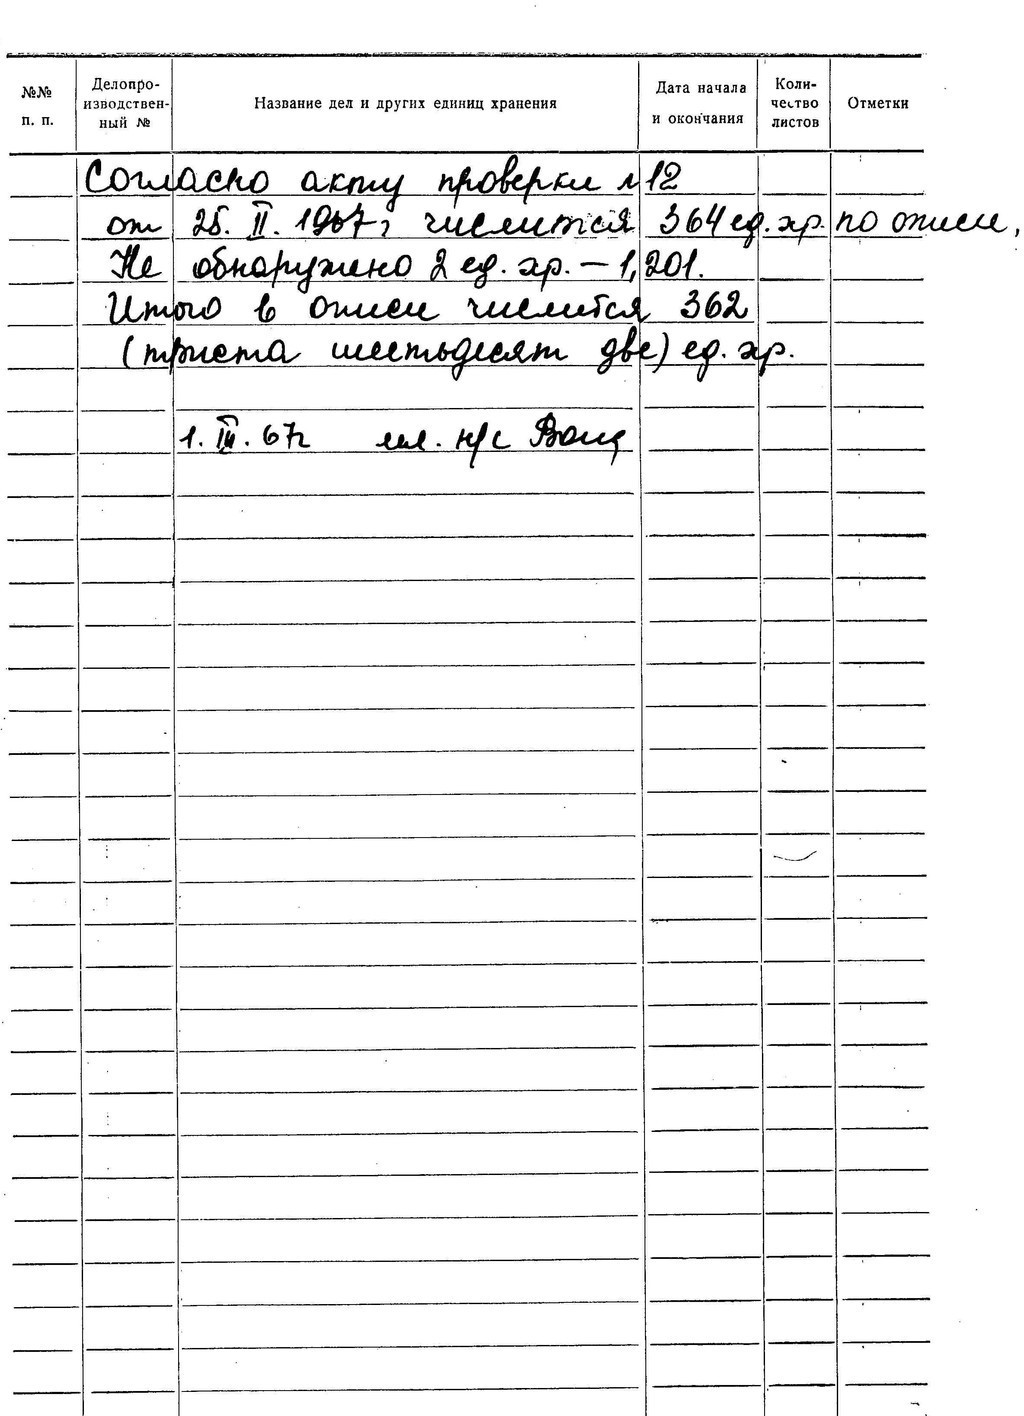 №№ п. п.
Делопро-
изводствен-
ный №
Название дел и других единиц хранения
Дата начала
и окончания
Коли-
чество
листов
Отметки
Согласно акту проверки № 12
от 25. II. 1967 г числится 364 ед. хр. по описи,
Не обнаружено 2 ед. хр. – 1, 201.
Итого в описи числится 362
(триста шестьдесят две) ед. хр.
1. III. 67г мл. н/с